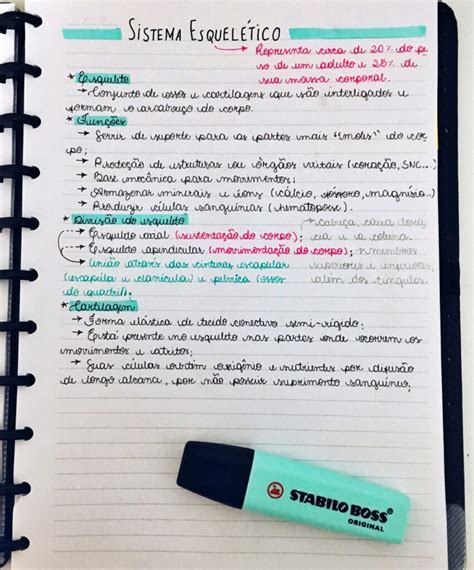 SISTEMA ESQUELÉTICO
→ Representa cerca de 20% do pe
so de um adulto e 25% de
sua massa corporal.
* Esqueleto
→ Conjunto de ossos e cartilagens que são interligados e
formam o arcabouço do corpo.
* Funções
→ Servir de suporte para as partes mais "moles" do cor
po;
→ Proteção de estruturas ou órgãos vitais (coração, SNC...)
→ Base mecânica para movimentos;
→ Armazenar minerais e íons (cálcio, fósforo, magnésio..)
→ Produzir células sanguíneas (hematopoese).
* Divisão do esqueleto
→ cabeça, caixa torá
→ Esqueleto axial (sustentação do corpo);
cica e a coluna.
→ Esqueleto apendicular (movimentação do corpo);
→ membros
→ União através das cinturas escapular
superiores e inferiores,
(escápula e clavícula) e pélvica (ossos
além dos cíngulos.
do quadril).
* Cartilagem
→ Forma elástica de tecido conectivo semi-rígido;
→ Está presente no esqueleto nas partes onde ocorrem os
movimentos e atritos;
→ Suas células obtém oxigênio e nutrientes por difusão
de longo alcance, por não possuir suprimento sanguíneo;
STABILO BOSS
ORIGINAL